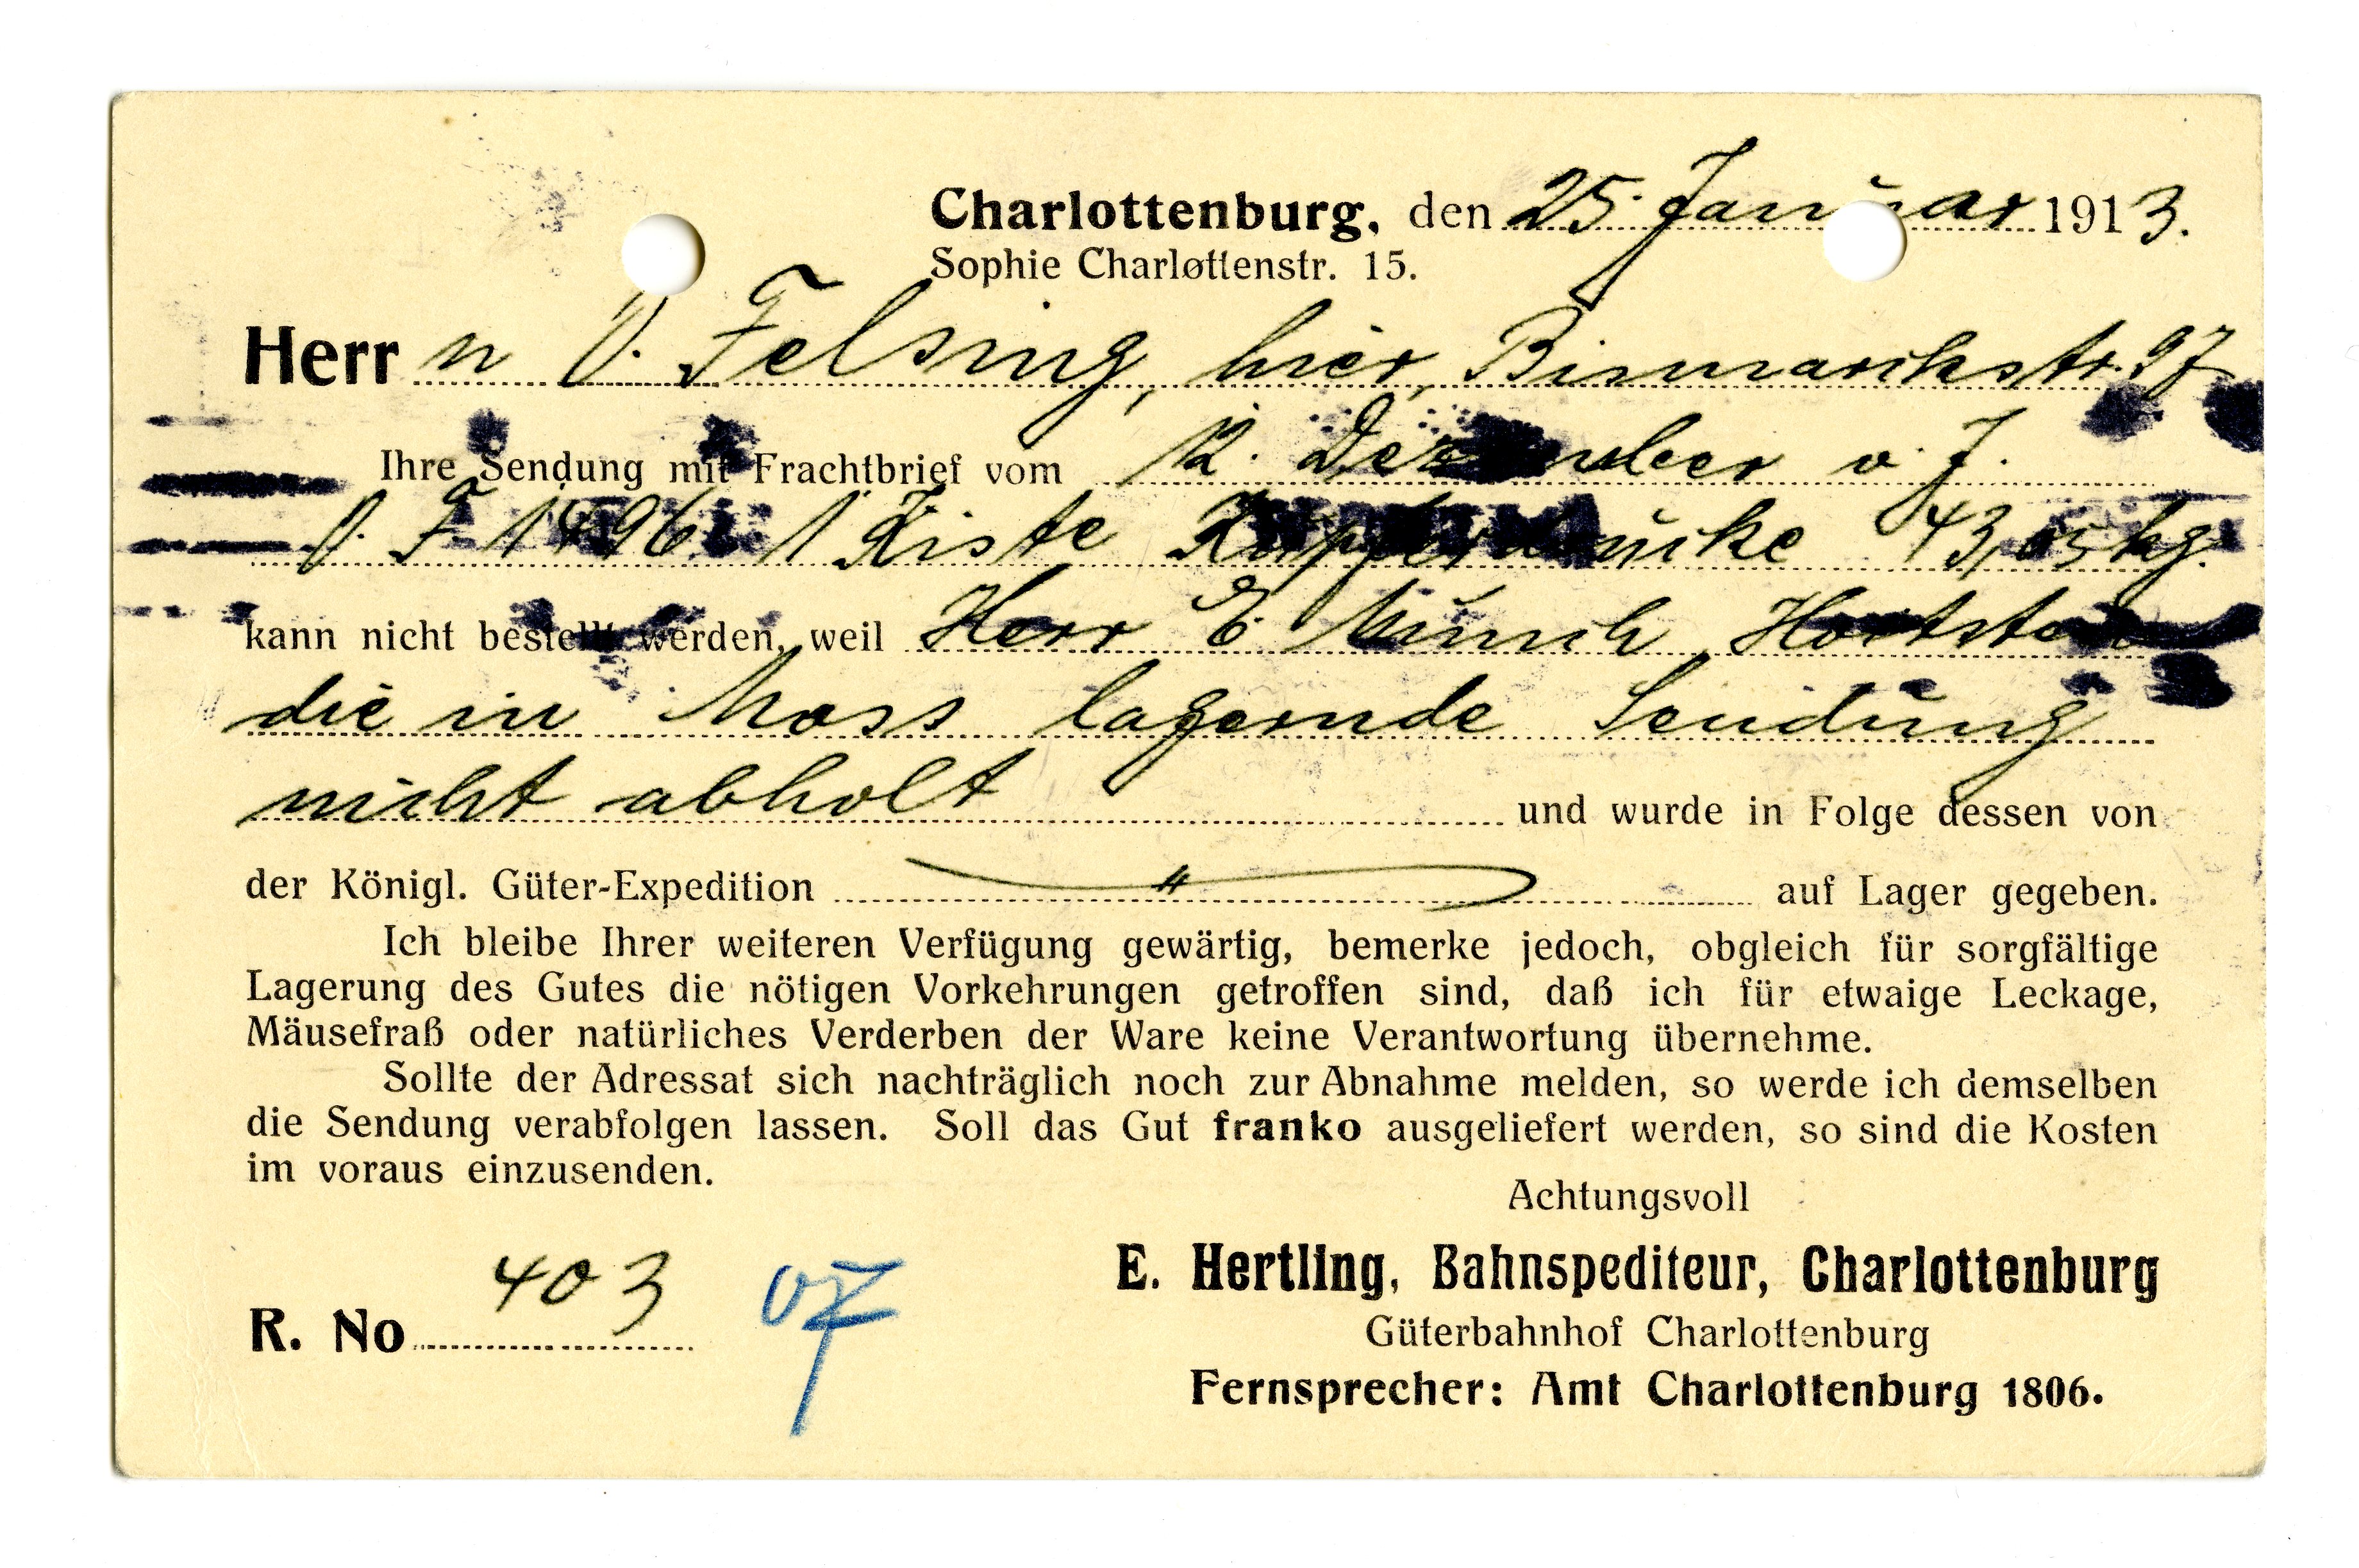 Charlottenburg, den 25. Januar 1913.
Sophie Charlottenstr. 15.
Herrn O. Felsing, hier, Bismarckstr. 97
Ihre Sendung mit Frachtbrief vom 12. Dezember v. J.
O. F. 1496 1 Kiste Kupferdrucke 43,05 kg.
kann nicht bestellt werden, weil Herr E. Munch
die in Moss lagernde Sendung
nicht abholt und wurde in Folge dessen von
der Königl. Güter-Expedition " auf Lager gegeben.
Ich bleibe Ihrer weiteren Verfügung gewärtig, bemerke jedoch, obgleich für sorgfältige
Lagerung des Gutes die nötigen Vorkehrungen getroffen sind, daß ich für etwaige Leckage,
Mäusefraß oder natürliches Verderben der Ware keine Verantwortung übernehme.
Sollte der Adressat sich nachträglich noch zur Abnahme melden, so werde ich demselben
die Sendung verabfolgen lassen. Soll das Gut franko ausgeliefert werden, so sind die Kosten
im voraus einzusenden.
Achtungsvoll
E. Hertling, Bahnspediteur, Charlottenburg
Güterbahnhof Charlottenburg
Fernsprecher: Amt Charlottenburg 1806.
R. No 403